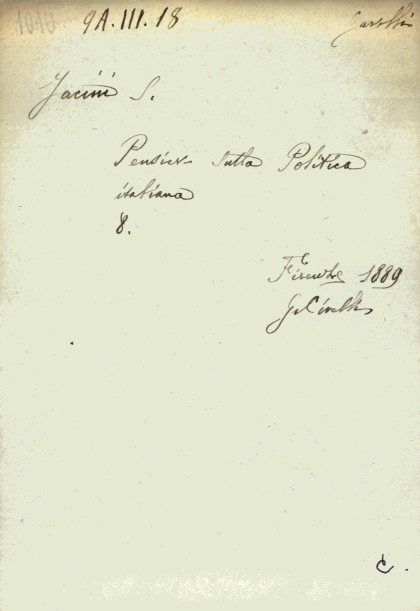 1010 9A.III.18
Jacini S.
Pensieri sulla Politica
italiana
8.
Firenze 1889
G. Civelli
C.